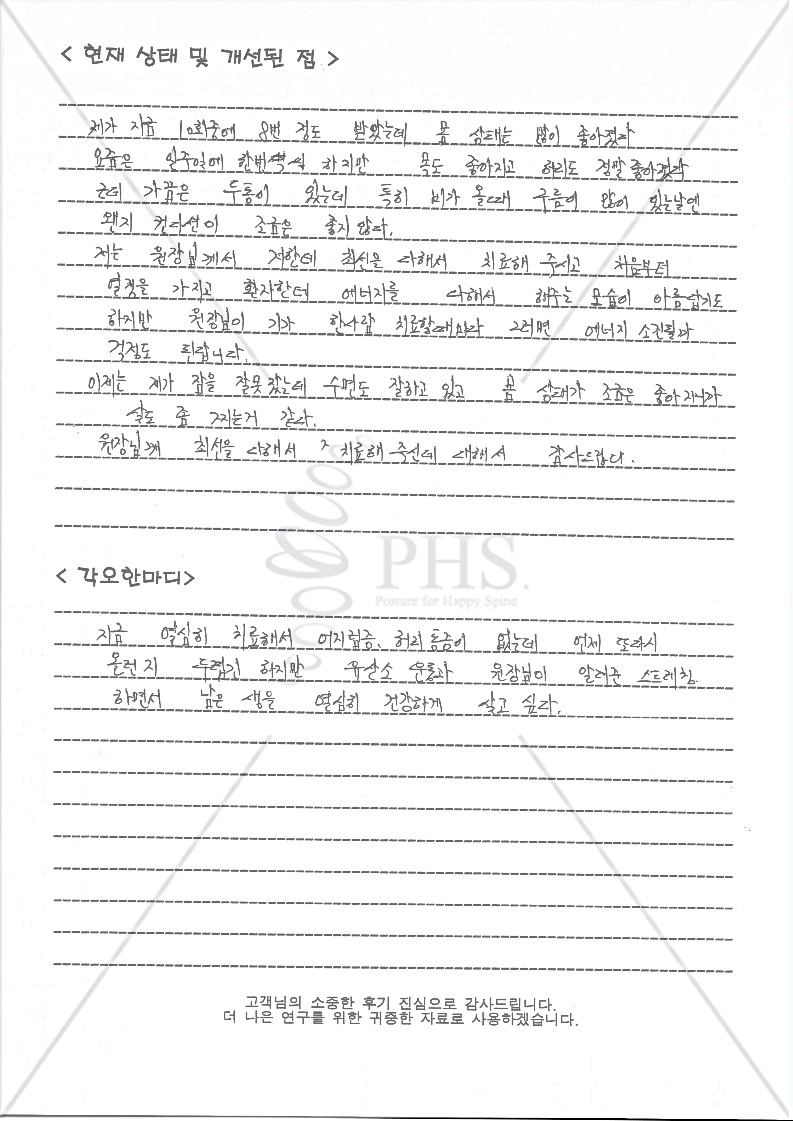 < 현재 상태 및 개선된 점 >
제가 지금 10회중에 8번 정도 받았는데 몸 상태는 많이 좋아졌다
요즘은 일주일에 한번씩 하지만 목도 좋아지고 허리도 정말 좋아졌다
근데 가끔은 두통이 있는데 특히 비가 올때 구름이 많이 있는날엔
왠지 컨디션이 조금은 좋지 않다.
저는 원장님께서 저한테 최선을 다해서 치료해 주시고 처음부터
열정을 가지고 환자한테 에너자를 다해서 해주는 모습이 아름답기도
하지만 원장님이 기가 한사람 치료할때마다 그러면 에너지 소진될까
걱정도 된답니다.
이제는 제가 잠을 잘못잤는데 수면도 잘하고 있고 몸 상태가 조금은 좋아지니까
살도 좀 찌는거 같다.
원장님께 최선을 다해서 치료해 주신데 대해서 감사드립다.
PHS.
Posture for Happy Spine
< 각오한마디>
지금 열심히 치료해서 어지럼증, 허리통증이 없는데 언제 또다시
올런지 두렵긴 하지만 유산소 운동과 원장님이 알려준 스트레칭
하면서 남은 생을 열심히 건강하게 살고 싶다.
고객님의 소중한 후기 진심으로 감사드립니다.
더 나은 연구를 위한 귀중한 자료로 사용하겠습니다.